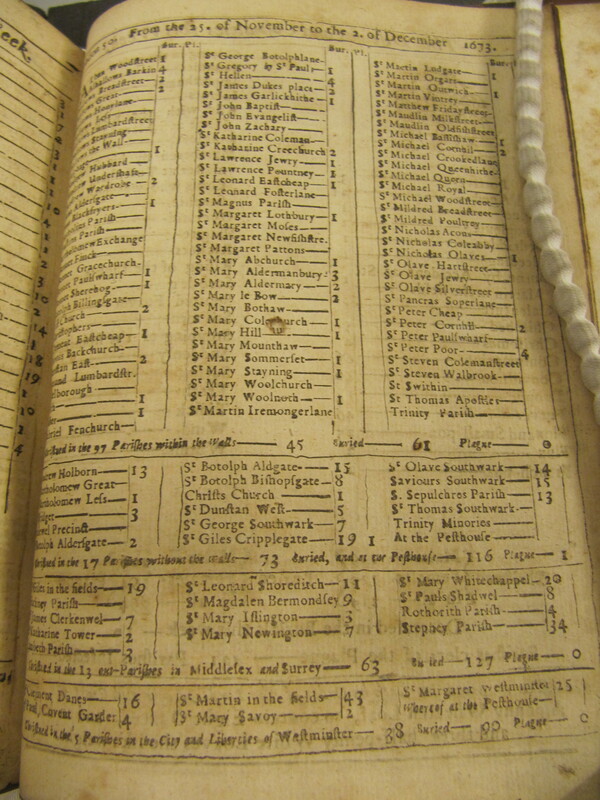 From the 25. of November to the 2. of December 1673.
Bur. Pl.
Bur. Pl.
Bur.
Woodstreet 1
Barkin 4
Breadstreet 2
Great 2
Lumbardstreet
the Wall 1
Hubbard
Undershaft
Wardrobe 2
Aldersgate
Blackfryers 1
Parish
Parish
Exchange
Finck
Gracechurch
Paulswharf 1
Sherehog 1
Billingsgate
church 2
Eastcheap 1
Backchurch
East 2
Lumbardstr.
borough 1
1
Fenchurch
St George Botolphlane
St Gregory by St Pauls 1
St Hellen 4
St James Dukes place 2
St James Garlickhithe 1
St John Baptist
St John Evangelist
St John Zachary
St Katharine Coleman
St Katharine Creechurch 2
St Lawrence Jewry 1
St Lawrence Pountney 1
St Leonard Eastcheap 1
St Leonard Fosterlane
St Magnus Parish
St Margaret Lothbury 1
St Margaret Moses
St Margaret Newfishstre.
St Margaret Pattons
St Mary Abchurch 1
St Mary Aldermanbury 3
St Mary Aldermary 2
St Mary le Bow 2
St Mary Bothaw
St Mary Colechurch 1
St Mary Hill 1
St Mary Mounthaw
St Mary Sommerset 1
St Mary Stayning 1
St Mary Woolchurch
St Mary Woolnoth 1
St Martin Iremongerlane
St Martin Ludgate
St Martin Orgars 1
St Martin Outwich 1
St Martin Vintrey
St Matthew Fridaystreet
St Maudlin Milkstreet
St Maudlin Oldfishstreet
St Michael Bassishaw 1
St Michael Cornhil 2
St Michael Crookedlane
St Michael Queenhithe
St Michael Quern
St Michael Royal
St Michael Woodstreet
St Mildred Breadstreet
St Mildred Poultrey
St Nicholas Acons
St Nicholas Coleabby
St Nicholas Olaves 1
St Olave Hartstreet
St Olave Jewry
St Olave Silverstreet
St Pancras Soperlane
St Peter Cheap
St Peter Cornhil 2
St Peter Paulswharf
St Peter Poor
St Steven Colemanstreet 4
St Steven Walbrook
St Swithin
St Thomas Apostles
Trinity Parish
in the 97 Parishes within the Walls 45 Buried 61 Plague 0
Holborn 13
Great
Less 1
3
Precinct
Aldersgate 2
St Botolph Aldgate 15
St Botolph Bishopsgate 8
Christs Church 1
St Dunstan West 5
St George Southwark 7
St Giles Cripplegate 19 1
St Olave Southwark 14
Saviours Southwark 15
S. Sepulchres Parish 13
St Thomas Southwark
Trinity Minories
At the Pesthouse
in the 17 Parishes without the walls 73 Buried, and at the Pesthouse 116 Plague 1
in the fields 19
Parish
James Clerkenwel 7
Katharine Tower 2
Parish 3
St Leonard Shoreditch 11
St Magdalen Bermondsey 9
St Mary Islington 3
St Mary Newington 7
St Mary Whitechappel 20
St Pauls Shadwel 8
Rothorith Parish 4
Stepney Parish 34
in the 13 out-Parishes in Middlesex and Surrey 63 Buried 127 Plague 0
Clement Danes 16
Paul Covent Garden 4
St Martin in the fields 43
St Mary Savoy 2
St Margaret Westminster 25
Whereof at the Pesthouse
in the 5 Parishes in the City and Liberties of Westminster 38 Buried 90 Plague 0